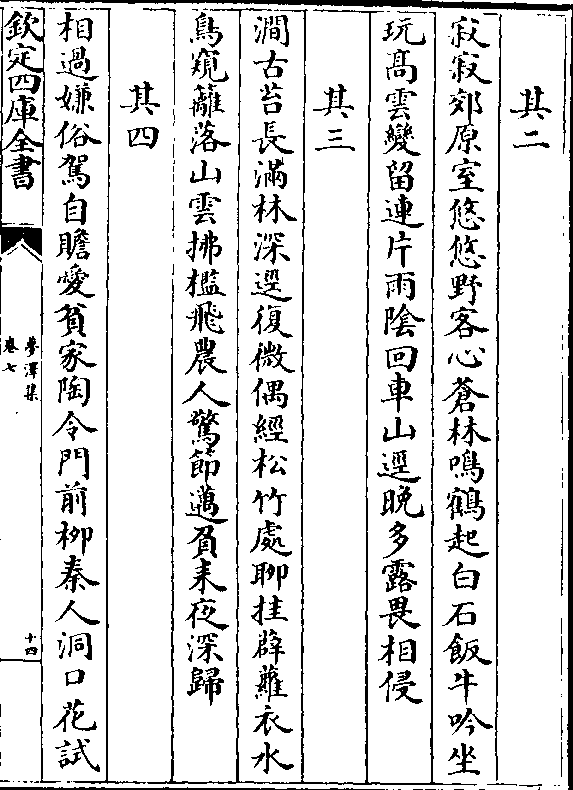 其二
寂寂郊原室悠悠野客心蒼林鳴鶴起白石飯牛吟坐
玩高雲變留連片雨陰回車山逕晚多露畏相侵
其三
澗古苔長滿林深逕復微偶經松竹處聊挂薜蘿衣水
鳥窺籬落山雲拂檻飛農人驚節邁負耒夜深歸
其四
相過嫌俗駕自瞻愛貧家陶令門前柳秦人洞口花試
欽定四庫全書
夢澤集
卷七
十四